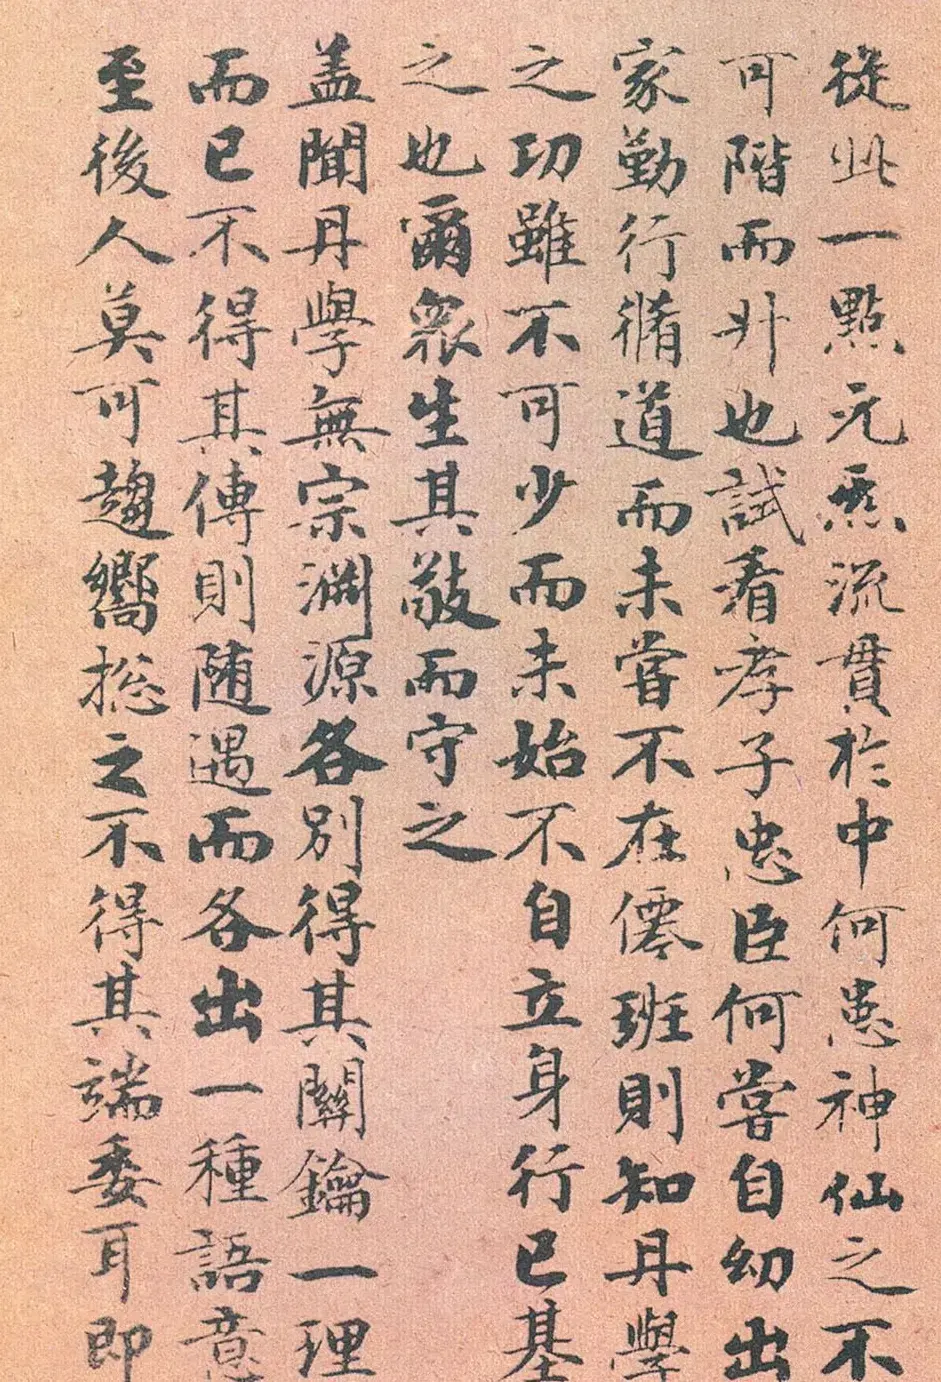 從此一點元炁流貫於中何患神仙之不
可階而升也試看孝子忠臣何嘗自幼出
家勤行脩道而未嘗不在僊班則知丹學
之功雖不可少而未始不自立身行已基
之也爾眾生其敬而守之
盖聞丹學無宗淵源各別得其關鑰一理
而已不得其傳則随遇而各出一種語意
至後人莫可趨嚮捴之不得其端委耳即